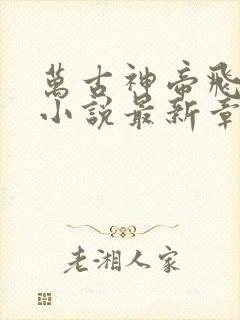 萬古神帝飛
小說最新章
老湘人家